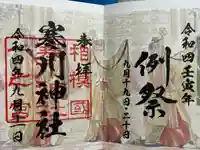 令和四壬寅年
例祭
九月十九日二十日
奉拝
相模國
寒川神社
令和四年九月十一日